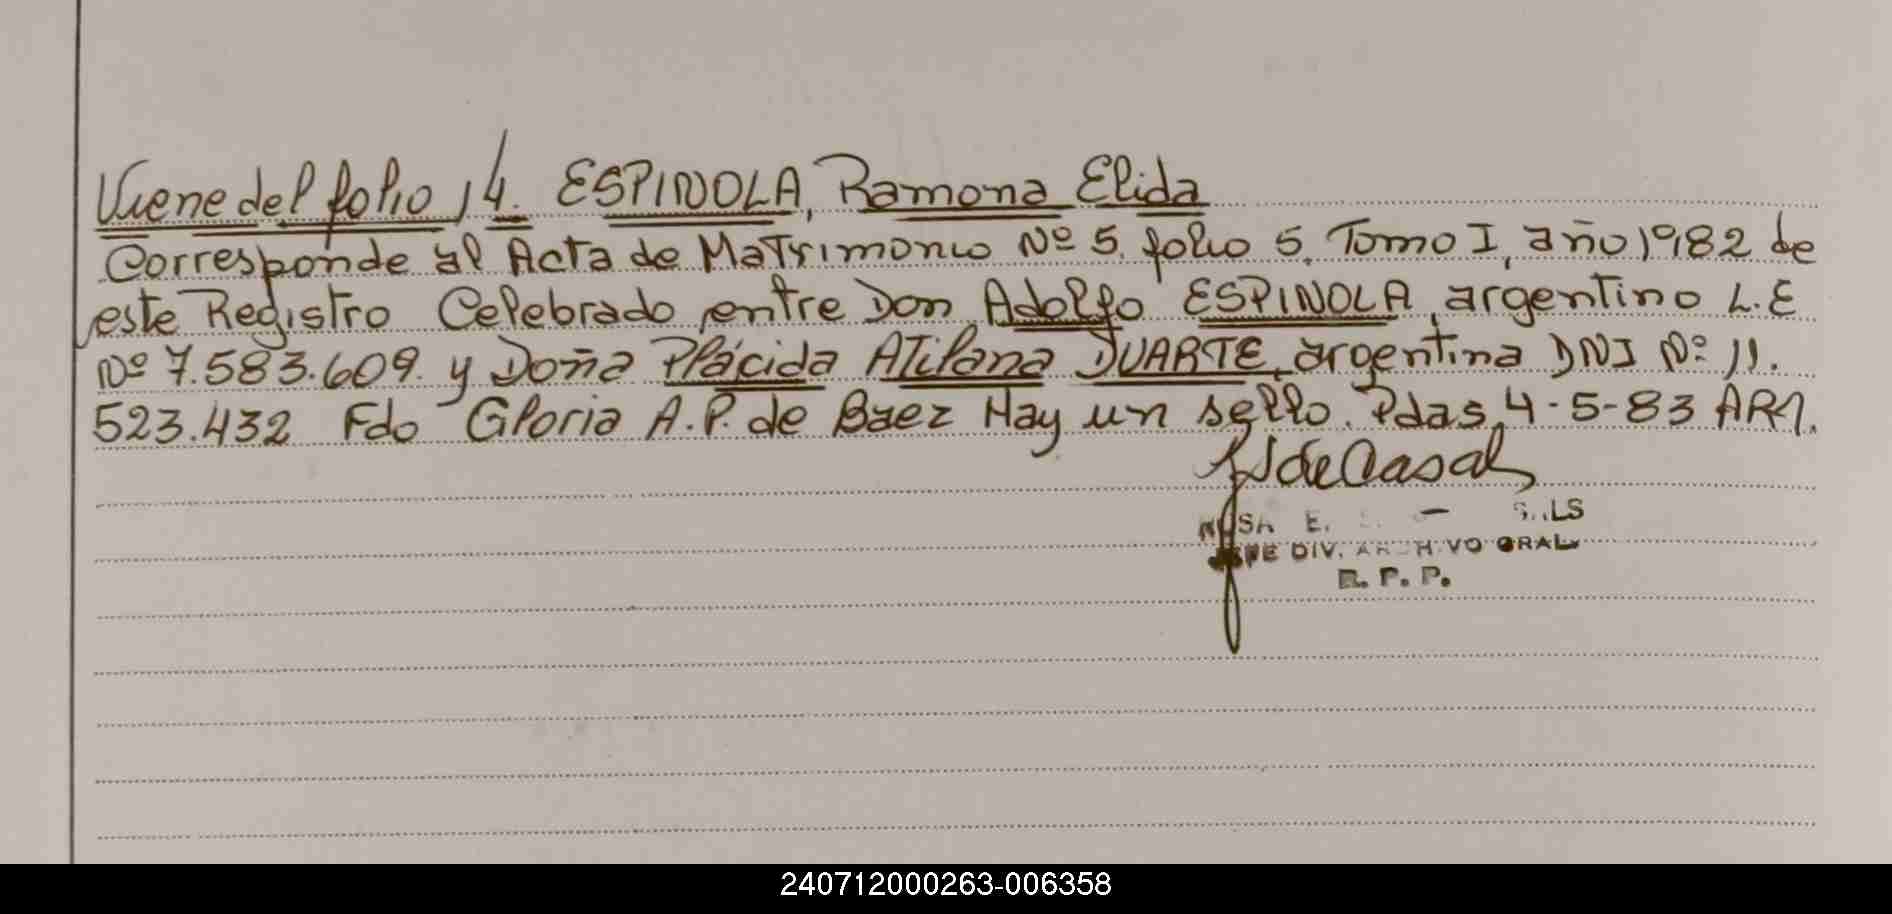 Viene del folio 14. ESPINOLA, Ramona Elida
Corresponde al Acta de Matrimonio Nº 5. folio 5. Tomo I, año 1982 de
este Registro Celebrado entre Don Adolfo ESPINOLA, argentino L.E
Nº 7.583.609. y Doña Plácida Atilana DUARTE, argentina DNI Nº 11.
523.432 Fdo Gloria A.P. de Baez Hay un sello. Pdas, 4-5-83 ARM.
de Casals
E.
JEFE DIV. ARCHIVO GRAL.
R. P. P.
240712000263-006358